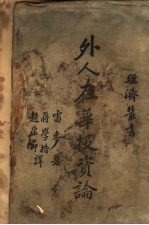 經濟叢書
外人在華投資論
雷麥著
蔣學楷
趙康節譯